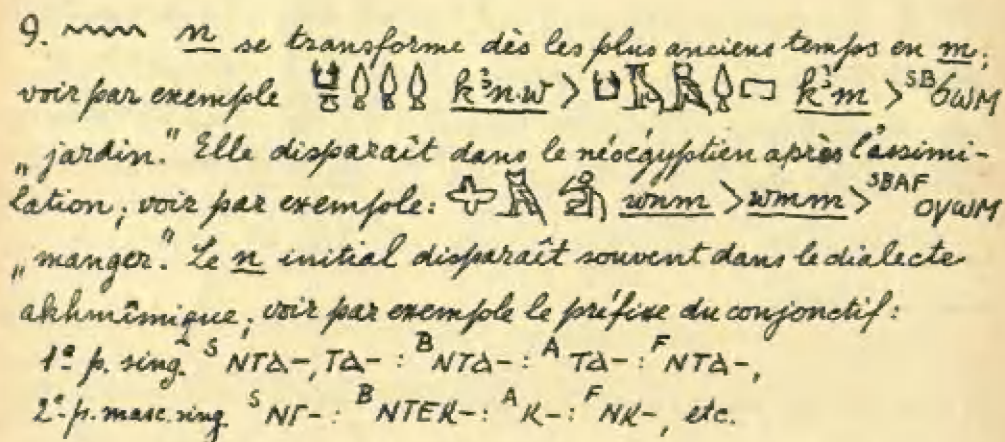 9. 𓈖 n se transforme dès les plus anciens temps en m;
voir par exemple k³n.w > k³m > SB ϭⲱⲙ
„jardin." Elle disparaît dans le néoégyptien après l'assimi-
lation; voir par exemple: wnm > wmm > SBAF ⲟⲩⲱⲙ
„manger." Le n initial disparaît souvent dans le dialecte
akhmîmique; voir par exemple le préfixe du conjonctif:
1e p. sing. S ⲛⲧⲁ-, ⲧⲁ- : B ⲛⲧⲁ- : A ⲧⲁ- : F ⲛⲧⲁ-,
2e p. masc. sing. S ⲛⲅ- : B ⲛⲧⲉⲕ- : A ⲕ- : F ⲛⲕ-, etc.